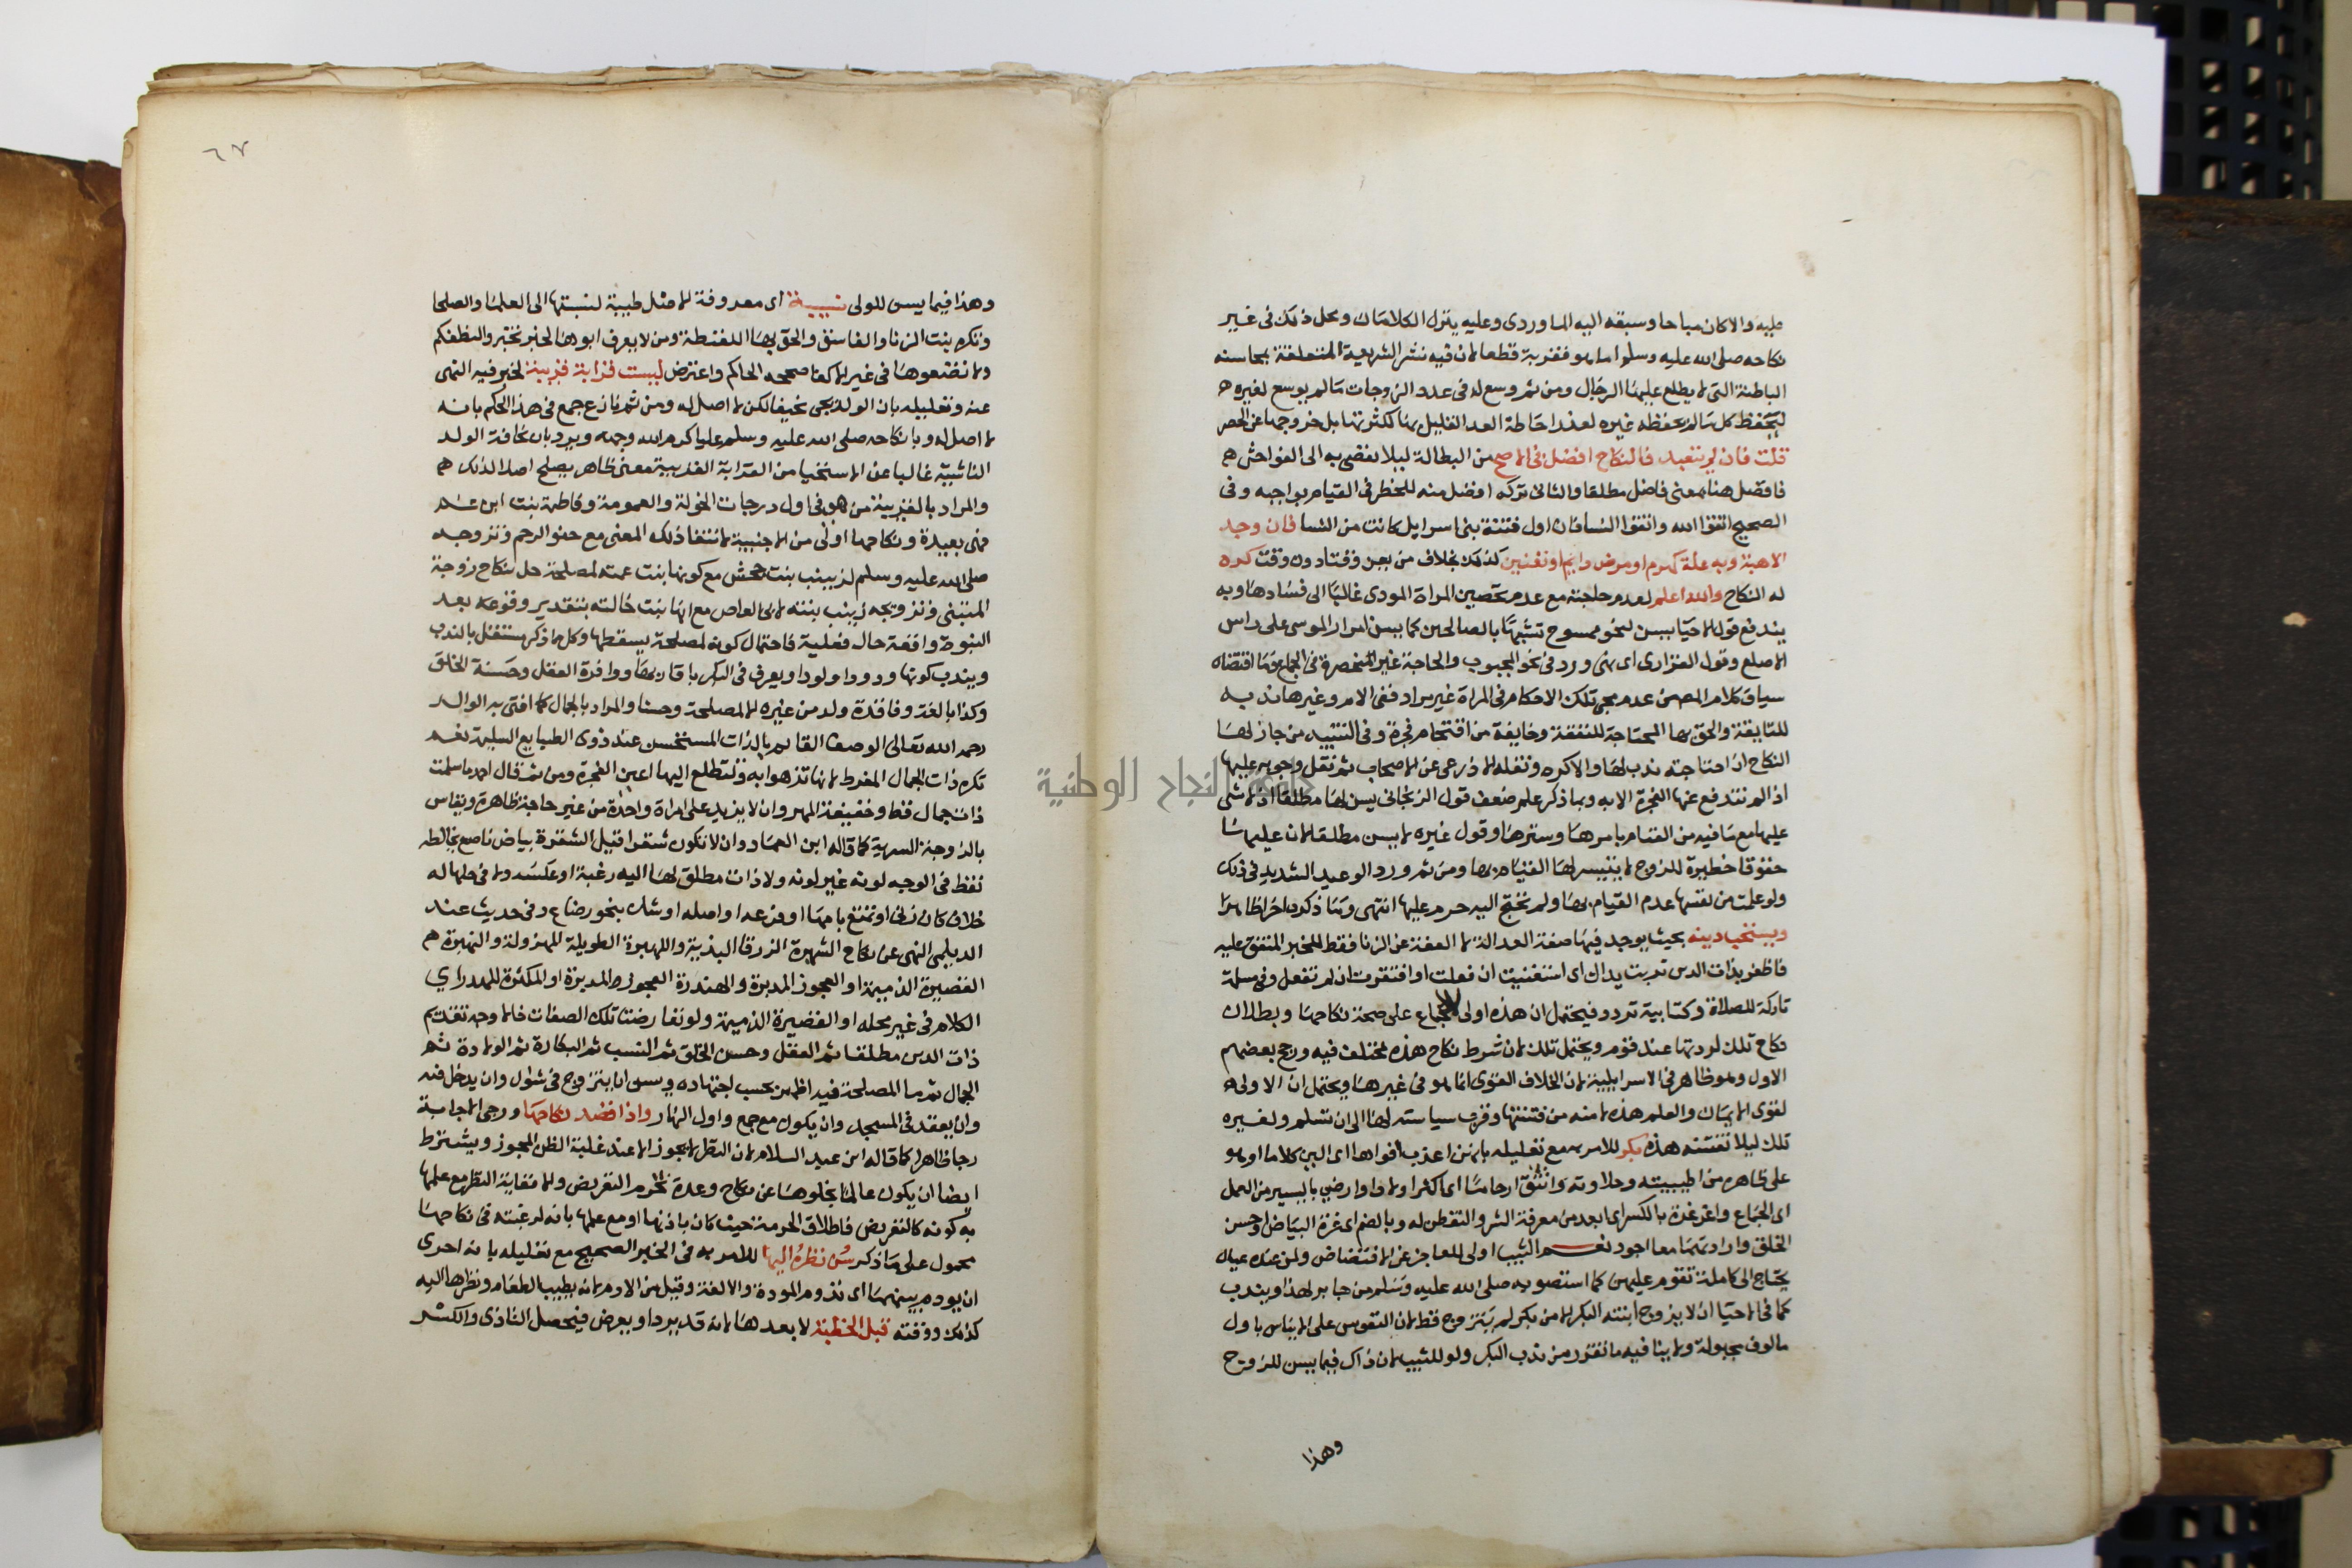 طيبه والا كان مباحا وسبقه اليه الماوردى وعليه ينزل الكلامان ومحل ذلك فى غير
نكاحه صلى الله عليه وسلم اما هو فقربة قطعا لان فيه نشر الشريعة المتعلقة بمحاسنه
الباطنة التى لا يطلع عليها الرجال ومن ثم وسع له فى عدد الزوجات ما لم يوسع لغيره
ليحفظ كل ما لم يحفظه غيره لتعذر احاطة العدد القليل بها لكثرتها بل خروجها عن الحصر
قلت فان لم يتعبد فالنكاح افضل فى الاصح من البطالة ليلا تفضى به الى الفواحش
فافضل هنا بمعنى فاضل مطلقا والثانى تركه افضل منه للخطر فى القيام بواجبه وفى
الصحيح اتقوا الله واتقوا النسا فان اول فتنة بنى اسرايل كانت من النسا فان وجد
الاهبة وبه علة كهرم او مرض دايم او تعنين كذلك بخلاف من يعن وقتا دون وقت كره
له النكاح والله اعلم لعدم حاجته مع عدم تحصين المراة المودى غالبا الى فسادها وبه
يندفع قول الاحيا يسن لنحو ممسوح تشبها بالصالحين كما يسن امرار الموسى على راس
الاصلع وقول الفزارى اى نهى ورد فى نحو المجبوب والحاجة غير منحصرة فى الجماع وما اقتضاه
سياق كلام المصنف عدم مجى تلك الاحكام فى المراة غير مراد ففى الام وغيرها ندبه
للتايقة والحق بها المحتاجة للنفقة وخايفة من اقتحام فجرة وفى التنبيه من جاز لها
النكاح ان احتاجته ندب لها والا كره ونقله الاذرعى عن الاصحاب ثم نقل وجوبه عليها
اذا لم تندفع عنها الفجرة الا به وبما ذكر علم ضعف قول الزنجانى يسن لها مطلقا اذ لا شى
عليها مع ما فيه من القيام بامرها وسترها وقول غيره لا يسن مطلقا لان عليها
حقوقا خطيرة للزوج لا يتيسر لها القيام بها ومن ثم ورد الوعيد الشديد فى ذلك
ولو علمت من نفسها عدم القيام بها ولم تحتج اليه حرم عليها انتهى وما ذكره اخرا ظاهر
ويستحب دينه بحيث يوجد فيها صفة العدالة لا العفة عن الزنا فقط للخبر المتفق عليه
فاظفر بذات الدين تربت يداك اى استغنيت ان فعلت او افتقرت ان لم تفعل وفى مسلمة
تاركة للصلاة وكتابية تردد فيحتمل ان هذه اولى للاجماع على صحة نكاحها وبطلان
نكاح تلك لردتها عند قوم ويحتمل تلك لان شرط نكاح هذه مختلف فيه ورجح بعضهم
الاول وهو ظاهر فى الاسرايلية لان الخلاف القوى انما هو فى غيرها ويحتمل ان الاولى
لقوى الايمان والعلم هذه لامنه من فتنتها وقرب سياسته لها الى ان تسلم ولغيره
تلك ليلا تفتنه هذه بكر للامر به مع تعليله بانهن اعذب افواها اى الين كلاما او هو
على ظاهره من اطيبيته وحلاوته وانتق ارحاما اى اكثر اولادا وارضى باليسير من العمل
اى الجماع واغر غرة بالكسر اى ابعد من معرفة الشر والتفطن له وبالضم اى غرة البياض او حسن
الخلق وارادتهما معا اجود نعم الثيب اولى للعاجز عن الافتضاض ولمن عنده عيال
يحتاج الى كاملة تقوم عليهن كما استصوبه صلى الله عليه وسلم من جابر لهذا ويندب
كما فى الاحيا ان لا يزوج ابنته البكر الا من بكر لم يتزوج قط لان النفوس على الايناس باول
مالوف مجبولة ولا ينافيه ما تقرر من ندب البكر ولو للثيب لان ذاك فيما يسن للزوج
وهذا
٦٧
وهذا فيما يسن للولى نسيبة اى معروفة الاصل طيبة لنسبتها الى العلما والصلحا
وتكره بنت الزنا والفاسق والحق بها اللقيطة ومن لا يعرف ابوها لخبر تخيروا لنطفكم
ولا تضعوها فى غير الاكفا صححه الحاكم واعترض ليست قرابة قريبة لخبر فيه النهى
عنه وتعليله بان الولد يجى نحيفا لكن لا اصل له ومن ثم نازع جمع فى هذا الحكم بانه
لا اصل له وبانكاحه صلى الله عليه وسلم عليا كرم الله وجهه ويرد بان نحافة الولد
الناشية غالبا عن الاستحيا من القرابة القريبة معنى ظاهر يصلح اصلا لذلك
والمراد بالقريبة من هى فى اول درجات الخولة والعمومة وفاطمة بنت ابن عم
فهى بعيدة ونكاحها اولى من الاجنبية لانتفا ذلك المعنى مع حنو الرحم وتزوجه
صلى الله عليه وسلم لزينب بنت جحش مع كونها بنت عمته لمصلحة حل نكاح زوجة
المتبنى وتزويجه زينب بنته لابى العاص مع انها بنت خالته بتقدير وقوعه بعد
النبوة واقعة حال فعلية فاحتمال كونه لمصلحة يسقطها وكل ما ذكر مستقل بالندب
ويندب كونها ودودا ولودا ويعرف فى البكر باقاربها ووافرة العقل وحسنة الخلق
وكذا بالغة وفاقدة ولد من غيره الا لمصلحة وحسنا والمراد بالجمال كما افتى به الوالد
رحمه الله تعالى الوصف القايم بالذات المستحسن عند ذوى الطبايع السليمة نعم
تكره ذات الجمال المفرط لانها تزهوا به وتتطلع اليها اعين الفجرة ومن ثم قال احمد ما سلمت
ذات جمال قط وخفيفة المهر وان لا يزيد على امراة واحدة من غير حاجة ظاهرة ويقاس
بالزوجة السرية كما قاله ابن العماد وان لا تكون شقرا قيل الشقرة بياض ناصع يخالطه
نقط فى الوجه لونه غير لونه ولا ذات مطلق لها اليه رغبة او عكسه ولا فى حلها له
خلاف كان زنى او تمتع بامها او فرعه او اصله او شك بنحو رضاع وفى حديث عند
الديلمى النهى عن نكاح الشهبرة الزرقا البذية واللهبرة الطويلة المهزولة والنهبرة
القصيرة الذميمة او العجوز المدبرة والهندرة العجوز المدبرة او المكثرة للهذر اي
الكلام فى غير محله او القصيرة الذميمة ولو تعارضت تلك الصفات فالاوجه تقديم
ذات الدين مطلقا ثم العقل وحسن الخلق ثم النسب ثم البكارة ثم الولادة ثم
الجمال ثم ما المصلحة فيه اظهر بحسب اجتهاده ويسن ان يتزوج فى شوال وان يدخل فيه
وان يعقد فى المسجد وان يكون مع جمع واول النهار واذا قصد نكاحها ورجى الاجابة
رجا ظاهرا كما قاله ابن عبد السلام لان النظر لا يجوز الا عند غلبة الظن المجوز ويشترط
ايضا ان يكون عالما بخلوها عن نكاح وعدة تحرم التعريض والا فغاية النظر مع علمها
به كونه كالتعريض فاطلاق الحرمة حيث كان باذنها او مع علمها بانه لرغبته فى نكاحها
محمول على ما ذكر سن نظره اليها للامر به فى الخبر الصحيح مع تعليله بانه احرى
ان يودم بينهما اى تدوم المودة والالفة وقيل من الادم لانه يطيب الطعام ونظرها اليه
كذلك ووقته قبل الخطبة لا بعدها لانه قد يرد او يعرض فيحصل التاذى والكسر
جامعة النجاح الوطنية